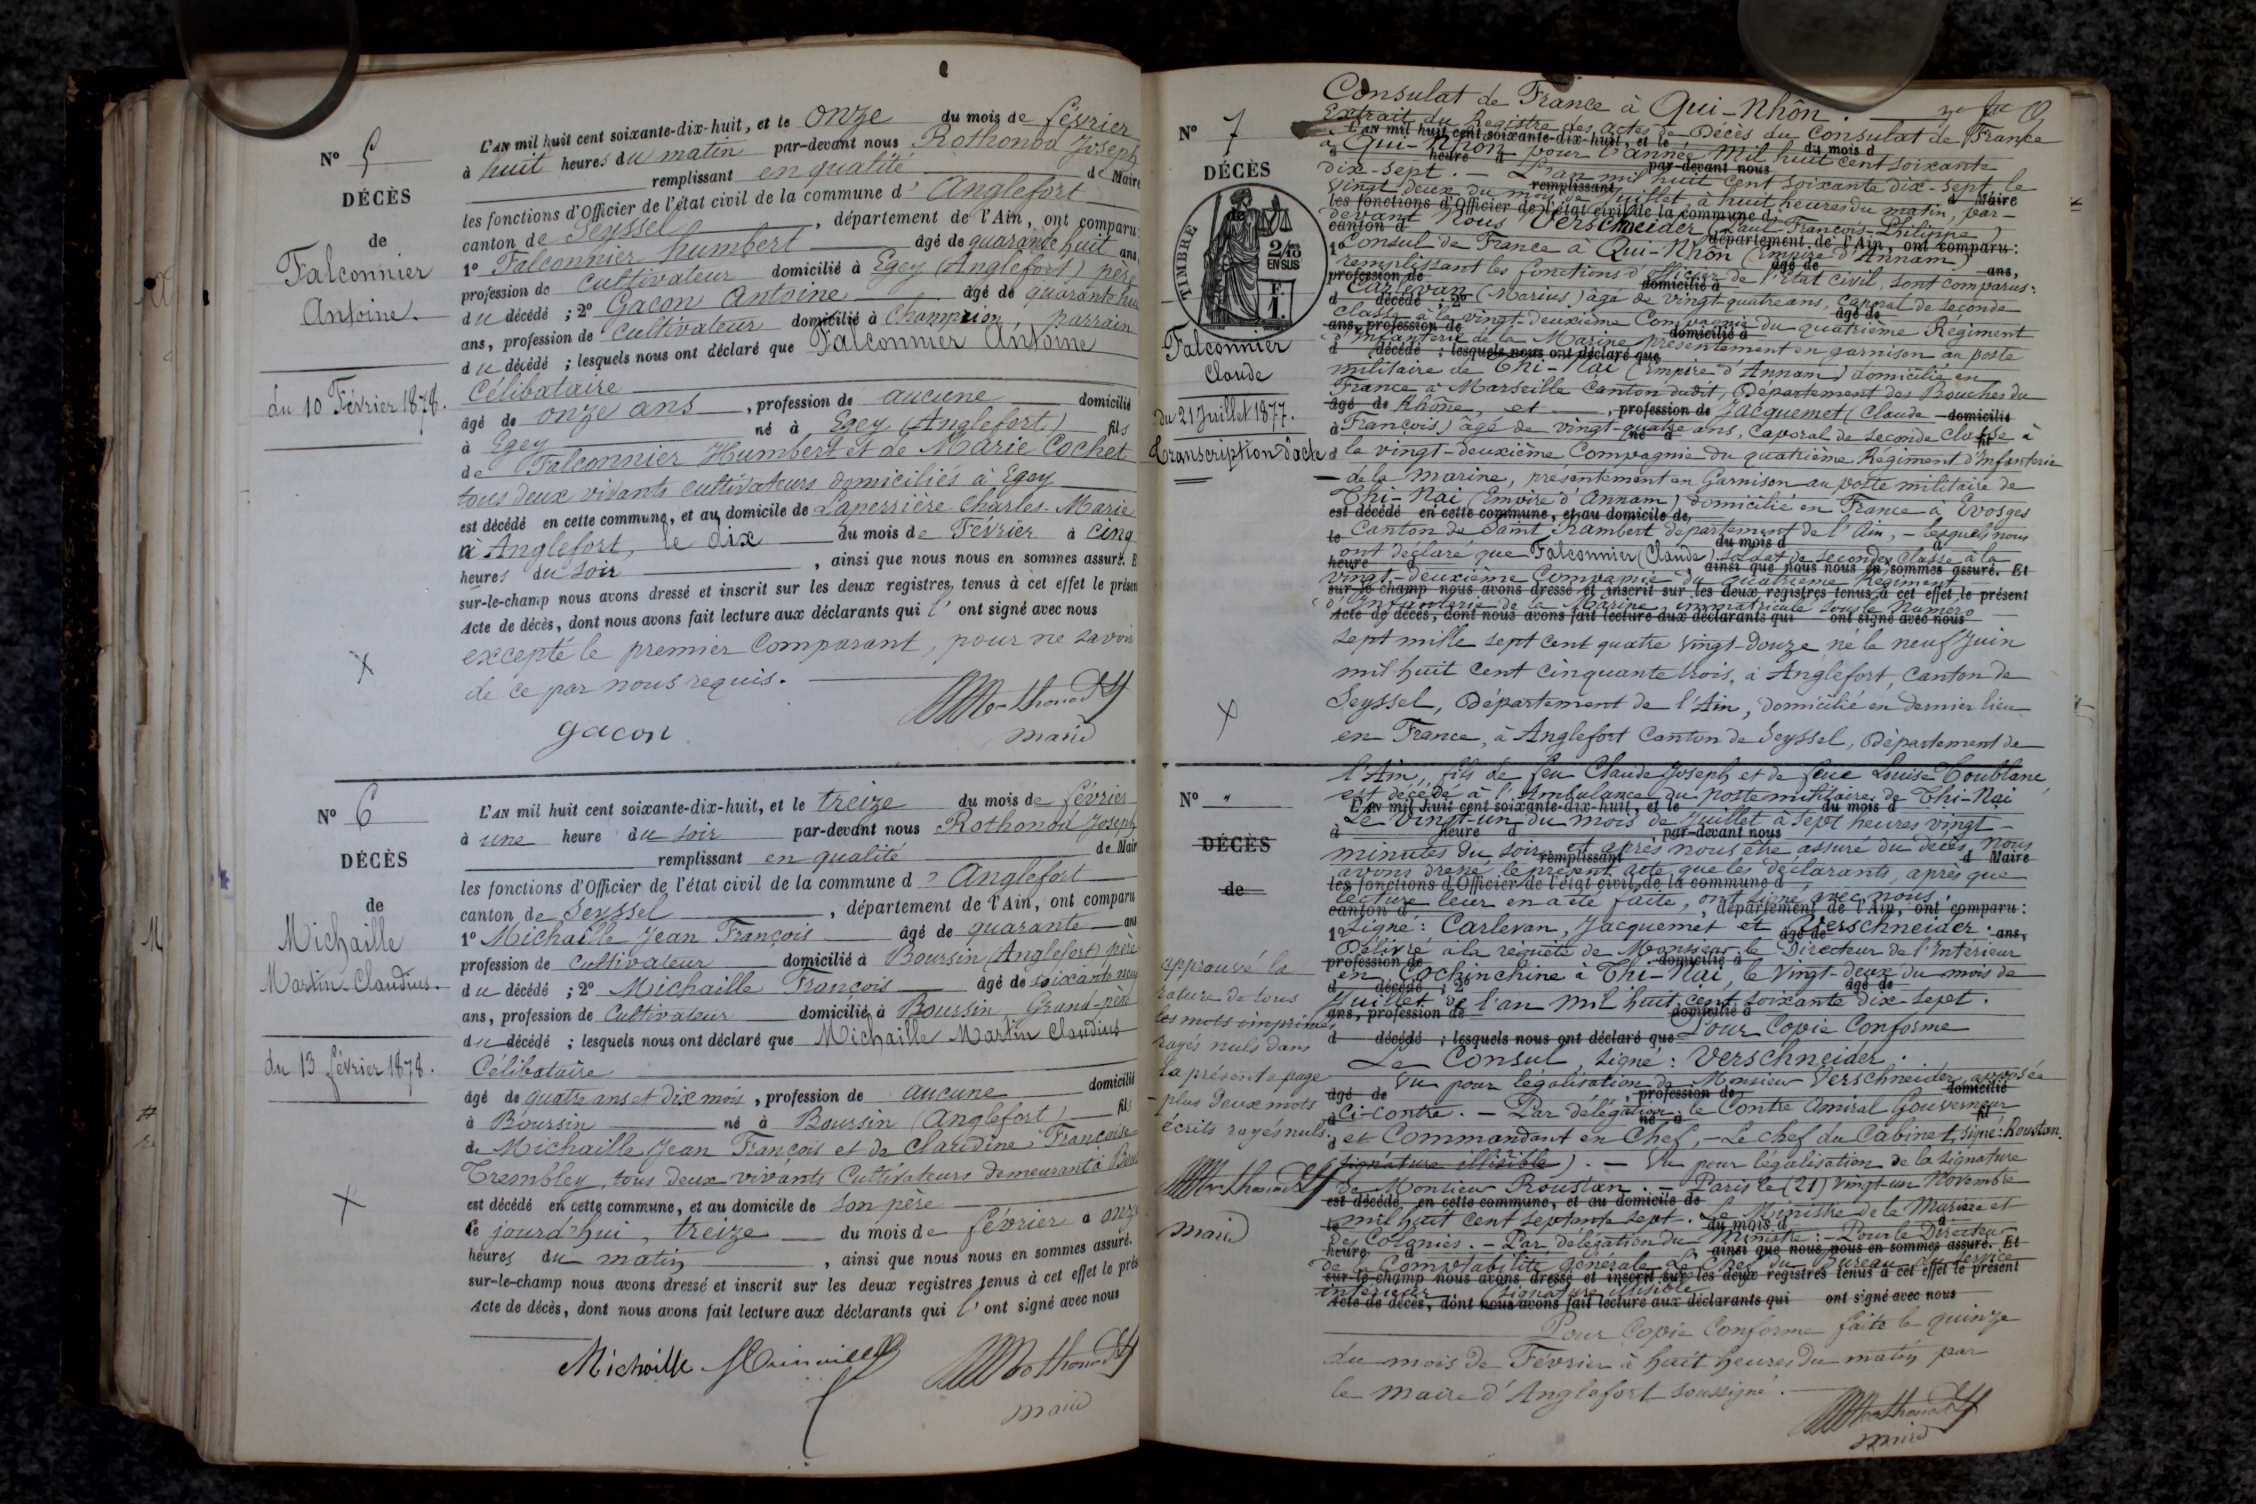 N° 5
DÉCÈS
de
Falconnier
Antoine.
du 10 Février 1878.
L'AN mil huit cent soixante-dix-huit, et le onze du mois de février
à huit heures du matin par-devant nous Rothonod Joseph
remplissant en qualité de Maire
les fonctions d'Officier de l'état civil de la commune d'Anglefort
canton de Seyssel, département de l'Ain, ont comparu:
1° Falconnier humbert âgé de quarante huit ans,
profession de cultivateur domicilié à Egey (Anglefort) père
du décédé ; 2° Gacon Antoine âgé de quarante huit
ans, profession de cultivateur domicilié à Champrion, parrain
du décédé ; lesquels nous ont déclaré que Falconnier Antoine
Célibataire
âgé de onze ans, profession de aucune domicilié
à Egey né à Egey (Anglefort) fils
de Falconnier Humbert et de Marie Cochet
tous deux vivants cultivateurs domiciliés à Egey
est décédé en cette commune, et au domicile de Laperrière Charles-Marie
à Anglefort, le dix du mois de Février à cinq
heures du soir, ainsi que nous nous en sommes assuré. E
sur-le-champ nous avons dressé et inscrit sur les deux registres, tenus à cet effet le présen
Acte de décès, dont nous avons fait lecture aux déclarants qui l'ont signé avec nous
excepté le premier comparant, pour ne savoir
de ce par nous requis.
gacon
Rothonod J
maire
N° 6
DÉCÈS
de
Michaille
Martin-Claudius.
du 13 février 1878.
L'AN mil huit cent soixante-dix-huit, et le treize du mois de février
à une heure du soir par-devant nous Rothonod Joseph
remplissant en qualité de Mair
les fonctions d'Officier de l'état civil de la commune d'Anglefort
canton de Seyssel, département de l'Ain, ont comparu
1° Michaille Jean François âgé de quarante ans
profession de cultivateur domicilié à Boursin (Anglefort) père
du décédé ; 2° Michaille François âgé de soixante neuf
ans, profession de Cultivateur domicilié à Boursin, Grand-père
du décédé ; lesquels nous ont déclaré que Michaille Martin Claudius
Célibataire
âgé de quatre ans et dix mois, profession de aucune domicilié
à Boursin né à Boursin (Anglefort) fils
de Michaille Jean François et de Claudine Françoise
Trembley, tous deux vivants Cultivateurs demeurant à
est décédé en cette commune, et au domicile de son père
le jourd'hui, treize du mois de février à onze
heures du matin, ainsi que nous nous en sommes assuré.
sur-le-champ nous avons dressé et inscrit sur les deux registres tenus à cet effet le prés
Acte de décès, dont nous avons fait lecture aux déclarants qui l'ont signé avec nous
Michaille
Rothonod J
maire
N° 7
DÉCÈS
de
TIMBRE
2/10
EN SUS
F.
1.
Falconnier
Claude
du 21 Juillet 1877.
Transcription d'acte
Consulat de France à Qui-Nhôn.
Extrait du Registre des actes de Décès du Consulat de France
à Qui-Nhôn pour l'année mil huit cent soixante
dix-sept. - L'an mil huit cent soixante dix-sept le
vingt deux du mois de Juillet, à huit heures du matin, par-
devant Nous Verschneider (Paul-François-Philippe)
Consul de France à Qui-Nhôn (Empire d'Annam)
remplissant les fonctions d'officier de l'état civil, sont comparus:
Carlevan (Marius) âgé de vingt-quatre ans, Caporal de seconde
classe à la vingt-deuxième Compagnie du quatrième Régiment
d'Infanterie de la Marine présentement en garnison au poste
militaire de Thi-Nai (Empire d'Annam) domicilié en
France à Marseille Canton dudit, Département des Bouches du
Rhône, et Jacquemet (Claude
François) âgé de vingt-quatre ans, Caporal de seconde Classe à
la vingt-deuxième Compagnie du quatrième Régiment d'Infanterie
de la Marine, présentement en Garnison au poste militaire de
Thi-Nai (Empire d'Annam) domicilié en France à Evosges
Canton de Saint Rambert département de l'Ain, - lesquels nous
ont déclaré que Falconnier (Claude) soldat de seconde Classe à la
vingt-deuxième Compagnie du quatrième Régiment
d'Infanterie de la Marine, immatriculé sous le Numéro
sept mille sept cent quatre vingt-douze, né le neuf Juin
mil huit cent cinquante trois, à Anglefort, Canton de
Seyssel, Département de l'Ain, domicilié en dernier lieu
en France, à Anglefort Canton de Seyssel, Département de
l'Ain, fils de feu Claude Joseph et de feue Louise Coublanc,
est décédé à l'Ambulance du poste militaire de Thi-Nai
Le vingt-un du mois de Juillet à sept heures vingt-
minutes du soir, et après nous être assuré du décès, nous
avons dressé le présent acte que les déclarants, après que
lecture leur en a été faite, ont signé avec nous.
Signé: Carlevan, Jacquemet et Verschneider.
Délivré à la requête de Monsieur le Directeur de l'Intérieur
en Cochinchine à Thi-Nai, le vingt-deux du mois de
Juillet de l'an mil huit cent soixante dix-sept.
Pour Copie Conforme
Le Consul, signé: Verschneider.
Vu pour légalisation de Monsieur Verschneider apposée
ci-contre. - Par délégation, le Contre Amiral Gouverneur
et Commandant en Chef, - Le chef du Cabinet, signé: Roustan.
(signature illisible). - Vu pour légalisation de la signature
de Monsieur Roustan. - Paris le (21) vingt-un Novembre
mil huit cent septante sept. Le Ministre de la Marine et
des Colonies. - Par délégation du Ministre: - Pour le Directeur
de la Comptabilité Générale, Le Chef du Bureau du service
intérieur (signature illisible)
Pour Copie Conforme faite le quinze
du mois de Février à huit heures du matin par
le maire d'Anglefort soussigné.
Rothonod J
maire
N° "
DÉCÈS
de
approuvé la
rature de tous
les mots imprimés
rayés nuls dans
la présente page
plus deux mots
écrits rayés nuls.
Rothonod J
maire